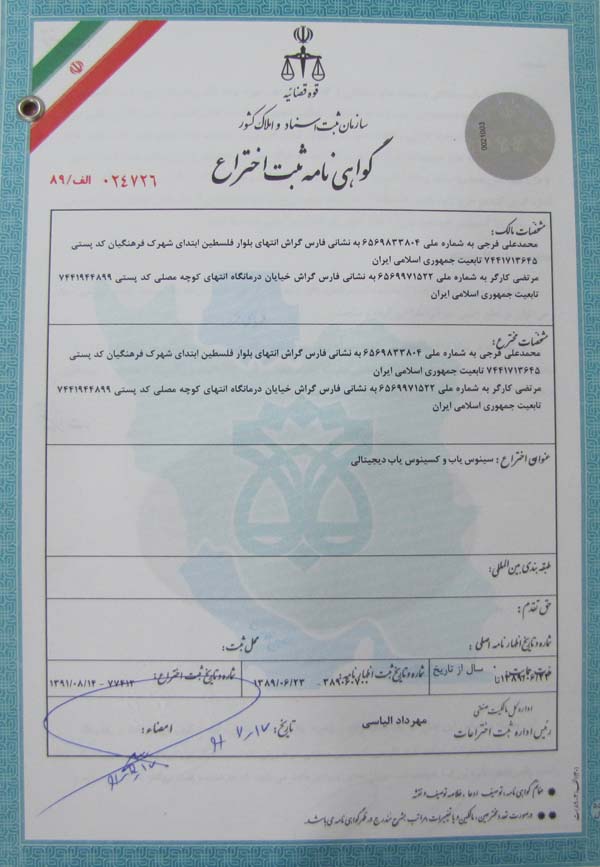 قوه قضائیه
سازمان ثبت اسناد و املاک کشور
گواهی نامه ثبت اختراع
۰۲۴۷۲۶ الف/۸۹
0021003
مشخصات مالک:
محمدعلی فرجی به شماره ملی ۶۵۶۹۸۳۳۸۰۴ به نشانی فارس گراش انتهای بلوار فلسطین ابتدای شهرک فرهنگیان کد پستی
۷۴۴۱۷۱۳۶۴۵ تابعیت جمهوری اسلامی ایران
مرتضی کارگر به شماره ملی ۶۵۶۹۹۷۱۵۲۲ به نشانی فارس گراش خیابان درمانگاه انتهای کوچه مصلی کد پستی ۷۴۴۱۹۴۴۸۹۹
تابعیت جمهوری اسلامی ایران
مشخصات مخترع:
محمدعلی فرجی به شماره ملی ۶۵۶۹۸۳۳۸۰۴ به نشانی فارس گراش انتهای بلوار فلسطین ابتدای شهرک فرهنگیان کد پستی
۷۴۴۱۷۱۳۶۴۵ تابعیت جمهوری اسلامی ایران
مرتضی کارگر به شماره ملی ۶۵۶۹۹۷۱۵۲۲ به نشانی فارس گراش خیابان درمانگاه انتهای کوچه مصلی کد پستی ۷۴۴۱۹۴۴۸۹۹
تابعیت جمهوری اسلامی ایران
عنوان اختراع: سینوس یاب و کسینوس یاب دیجیتالی
طبقه بندی بین المللی:
حق تقدم:
شماره و تاریخ اظهار نامه اصلی: محل ثبت:
مدت حمایت: سال از تاریخ تا شماره و تاریخ ثبت اظهارنامه: ۱۳۸۹/۰۶/۲۳ شماره و تاریخ ثبت اختراع: ۷۷۴۱۳ - ۱۳۹۱/۰۸/۱۴
اداره کل مالکیت صنعتی
رئیس اداره ثبت اختراعات
مهرداد الیاسی
تاریخ: امضاء:
ضمائم گواهی نامه، توصیف، ادعا، خلاصه توصیف و نقشه
در صورت تعدد مخترعین، مالکین و یا تغییرات، مراتب بشرح مندرج در ظهر گواهی نامه می باشد.